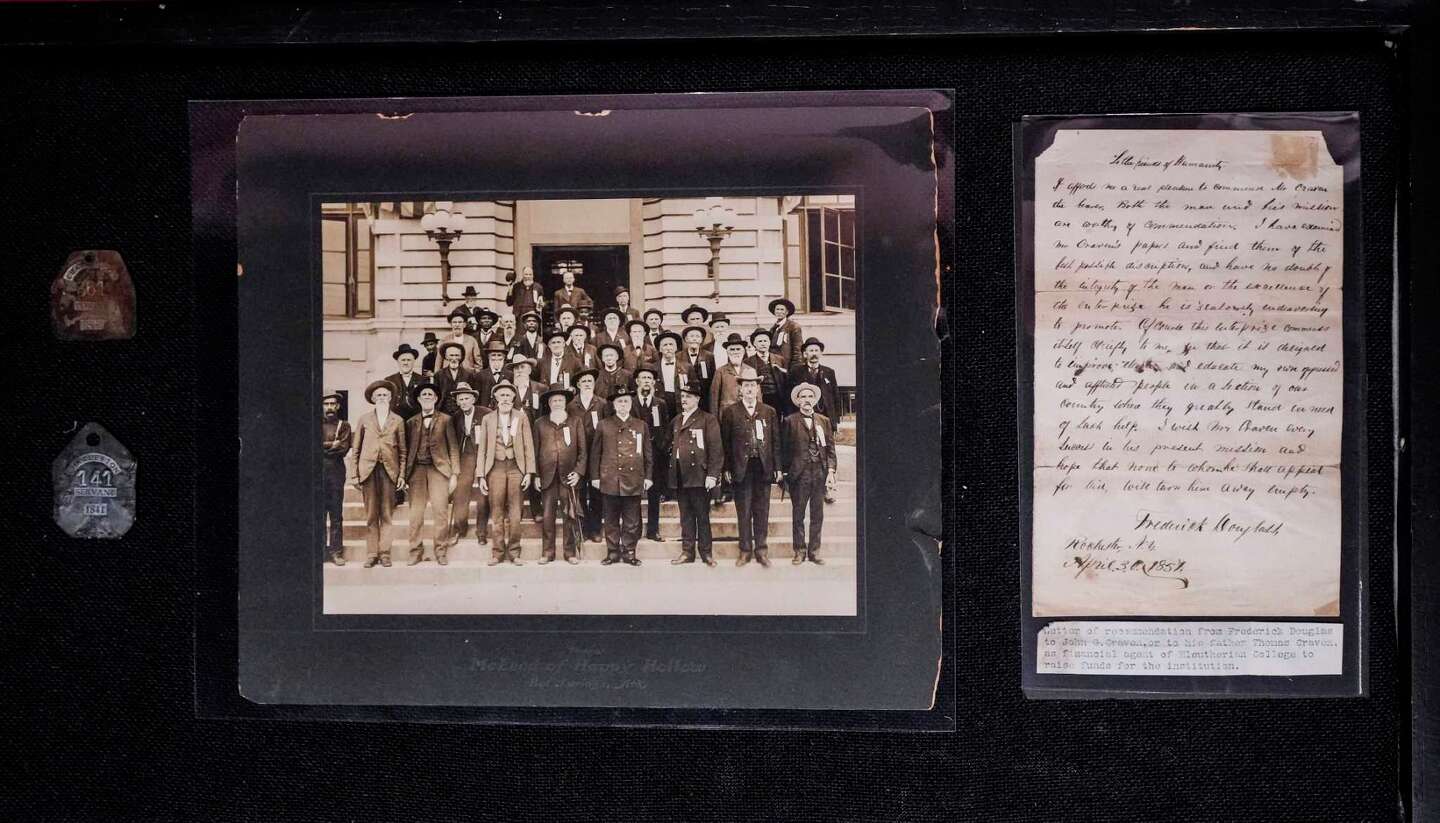 CHARLESTON
141
SERVANT
1841
McLeod's Happy Hollow
Hot Springs, Ark.
To the friends of Humanity
It affords me a real pleasure to commend Mr Craven
the bearer, Both the man and his mission
are worthy of commendation, I have examined
Mr Craven's papers and find them of the
best possible discription, and have no doubt of
the integrity of the man or the excellence of
the enterprize he is zealously endeavoring
to promote. Of course this enterprize commends
itself chiefly to me, for that it is designed
to improve and educate my own oppressed
and afflicted people in a section of our
Country where they greatly stand in need
of such help. I wish Mr Craven every
success in his present mission and
hope that none to whom he shall appeal
for aid, will turn him away empty.
Frederick Douglass
Rochester, N.Y.
April 30. 1857.
Letter of recommendation from Frederick Douglas
to John G.Craven,or to his father Thomas Craven,
as financial agent of Eleutherian College to
raise funds for the institution.